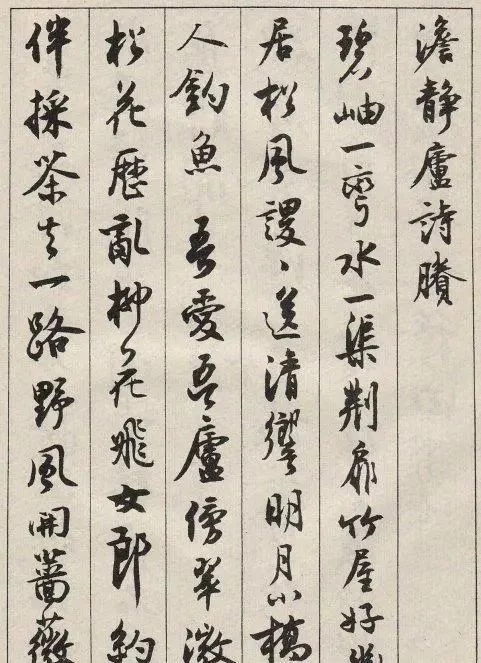 澹静廬詩賸
碧岫一彎水一渠荆扉竹屋好
居松風謖〻送清響明月小橋
人釣魚 吾愛吾廬傍翠微
松花歷亂柳花飛女郎約
伴採茶去一路野風開薔薇